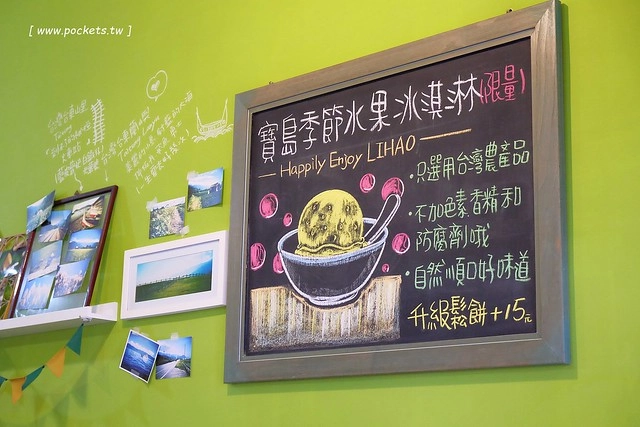 [ www.pockets.tw ]
寶島季節水果冰淇淋(限量)
Happily Enjoy LIHAO
·只選用台灣農產品
·不加色素香精和
防腐劑哦
·自然順口好味道
升級鬆餅+15元